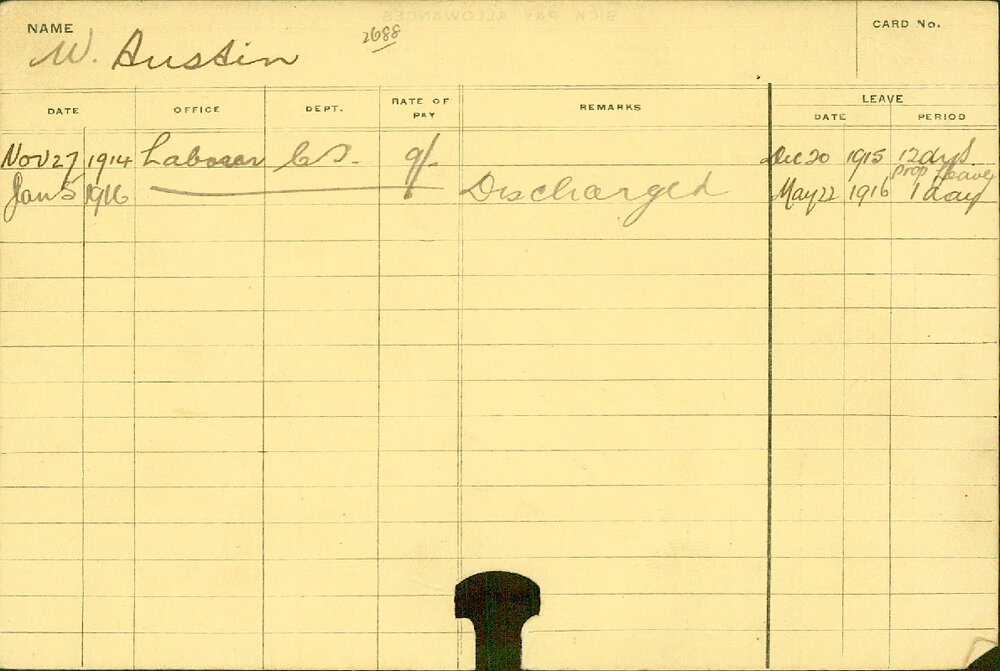 SICK PAY ALLOWANCES
NAME
W. Austin 2688
CARD No.
DATE OFFICE DEPT. RATE OF PAY REMARKS LEAVE
DATE PERIOD
Nov 27 1914 Labourer 9/- Dec 20 1915 12 dys
Prop Leave
Jan 5 1916 Discharged May 22 1916 1 day